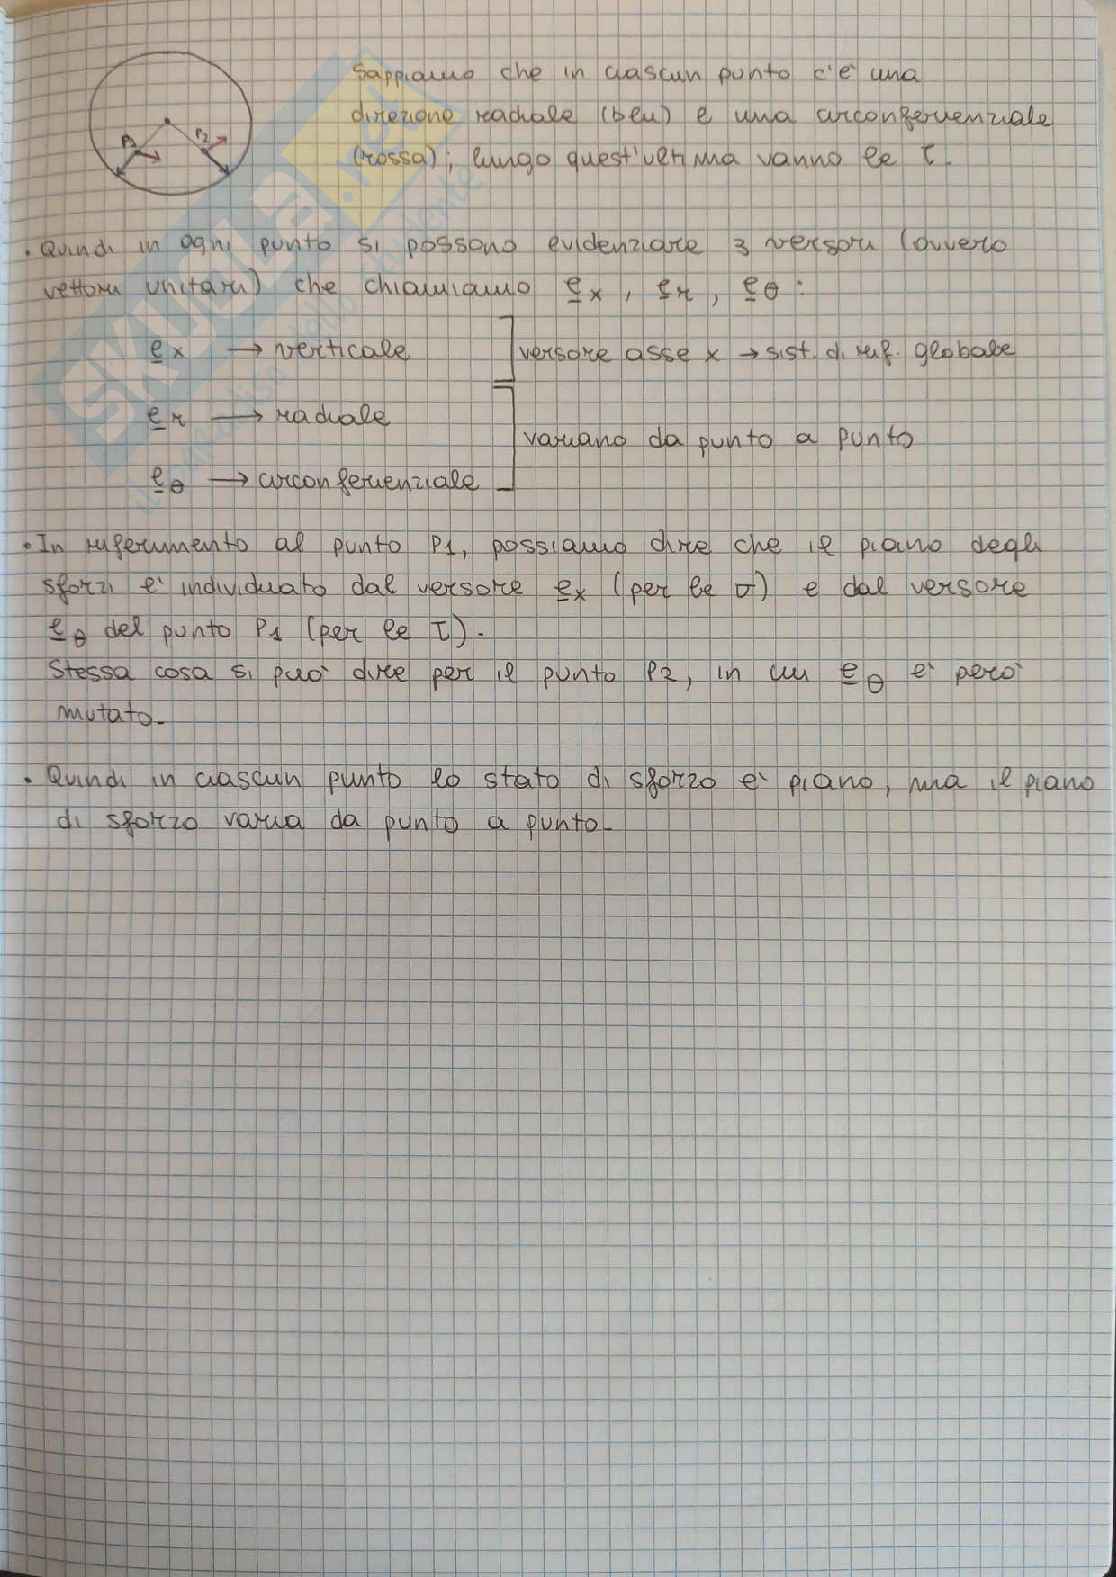 Sappiamo che in ciascun punto c'è una
direzione radiale (blu) e una circonferenziale
(rossa); lungo quest'ultima vanno le τ.
P1
P2
• Quindi in ogni punto si possono evidenziare 3 versori (ovvero
vettori unitari) che chiamiamo e̲x, e̲r, e̲θ:
e̲x → verticale
versore asse x → sist. di rif. globale
e̲r → radiale
variano da punto a punto
e̲θ → circonferenziale
• In riferimento al punto P1, possiamo dire che il piano degli
sforzi è individuato dal versore e̲x (per le σ) e dal versore
e̲θ del punto P1 (per le τ).
Stessa cosa si può dire per il punto P2, in cui e̲θ è però
mutato.
• Quindi in ciascun punto lo stato di sforzo è piano, ma il piano
di sforzo varia da punto a punto.
SKUOLA.net